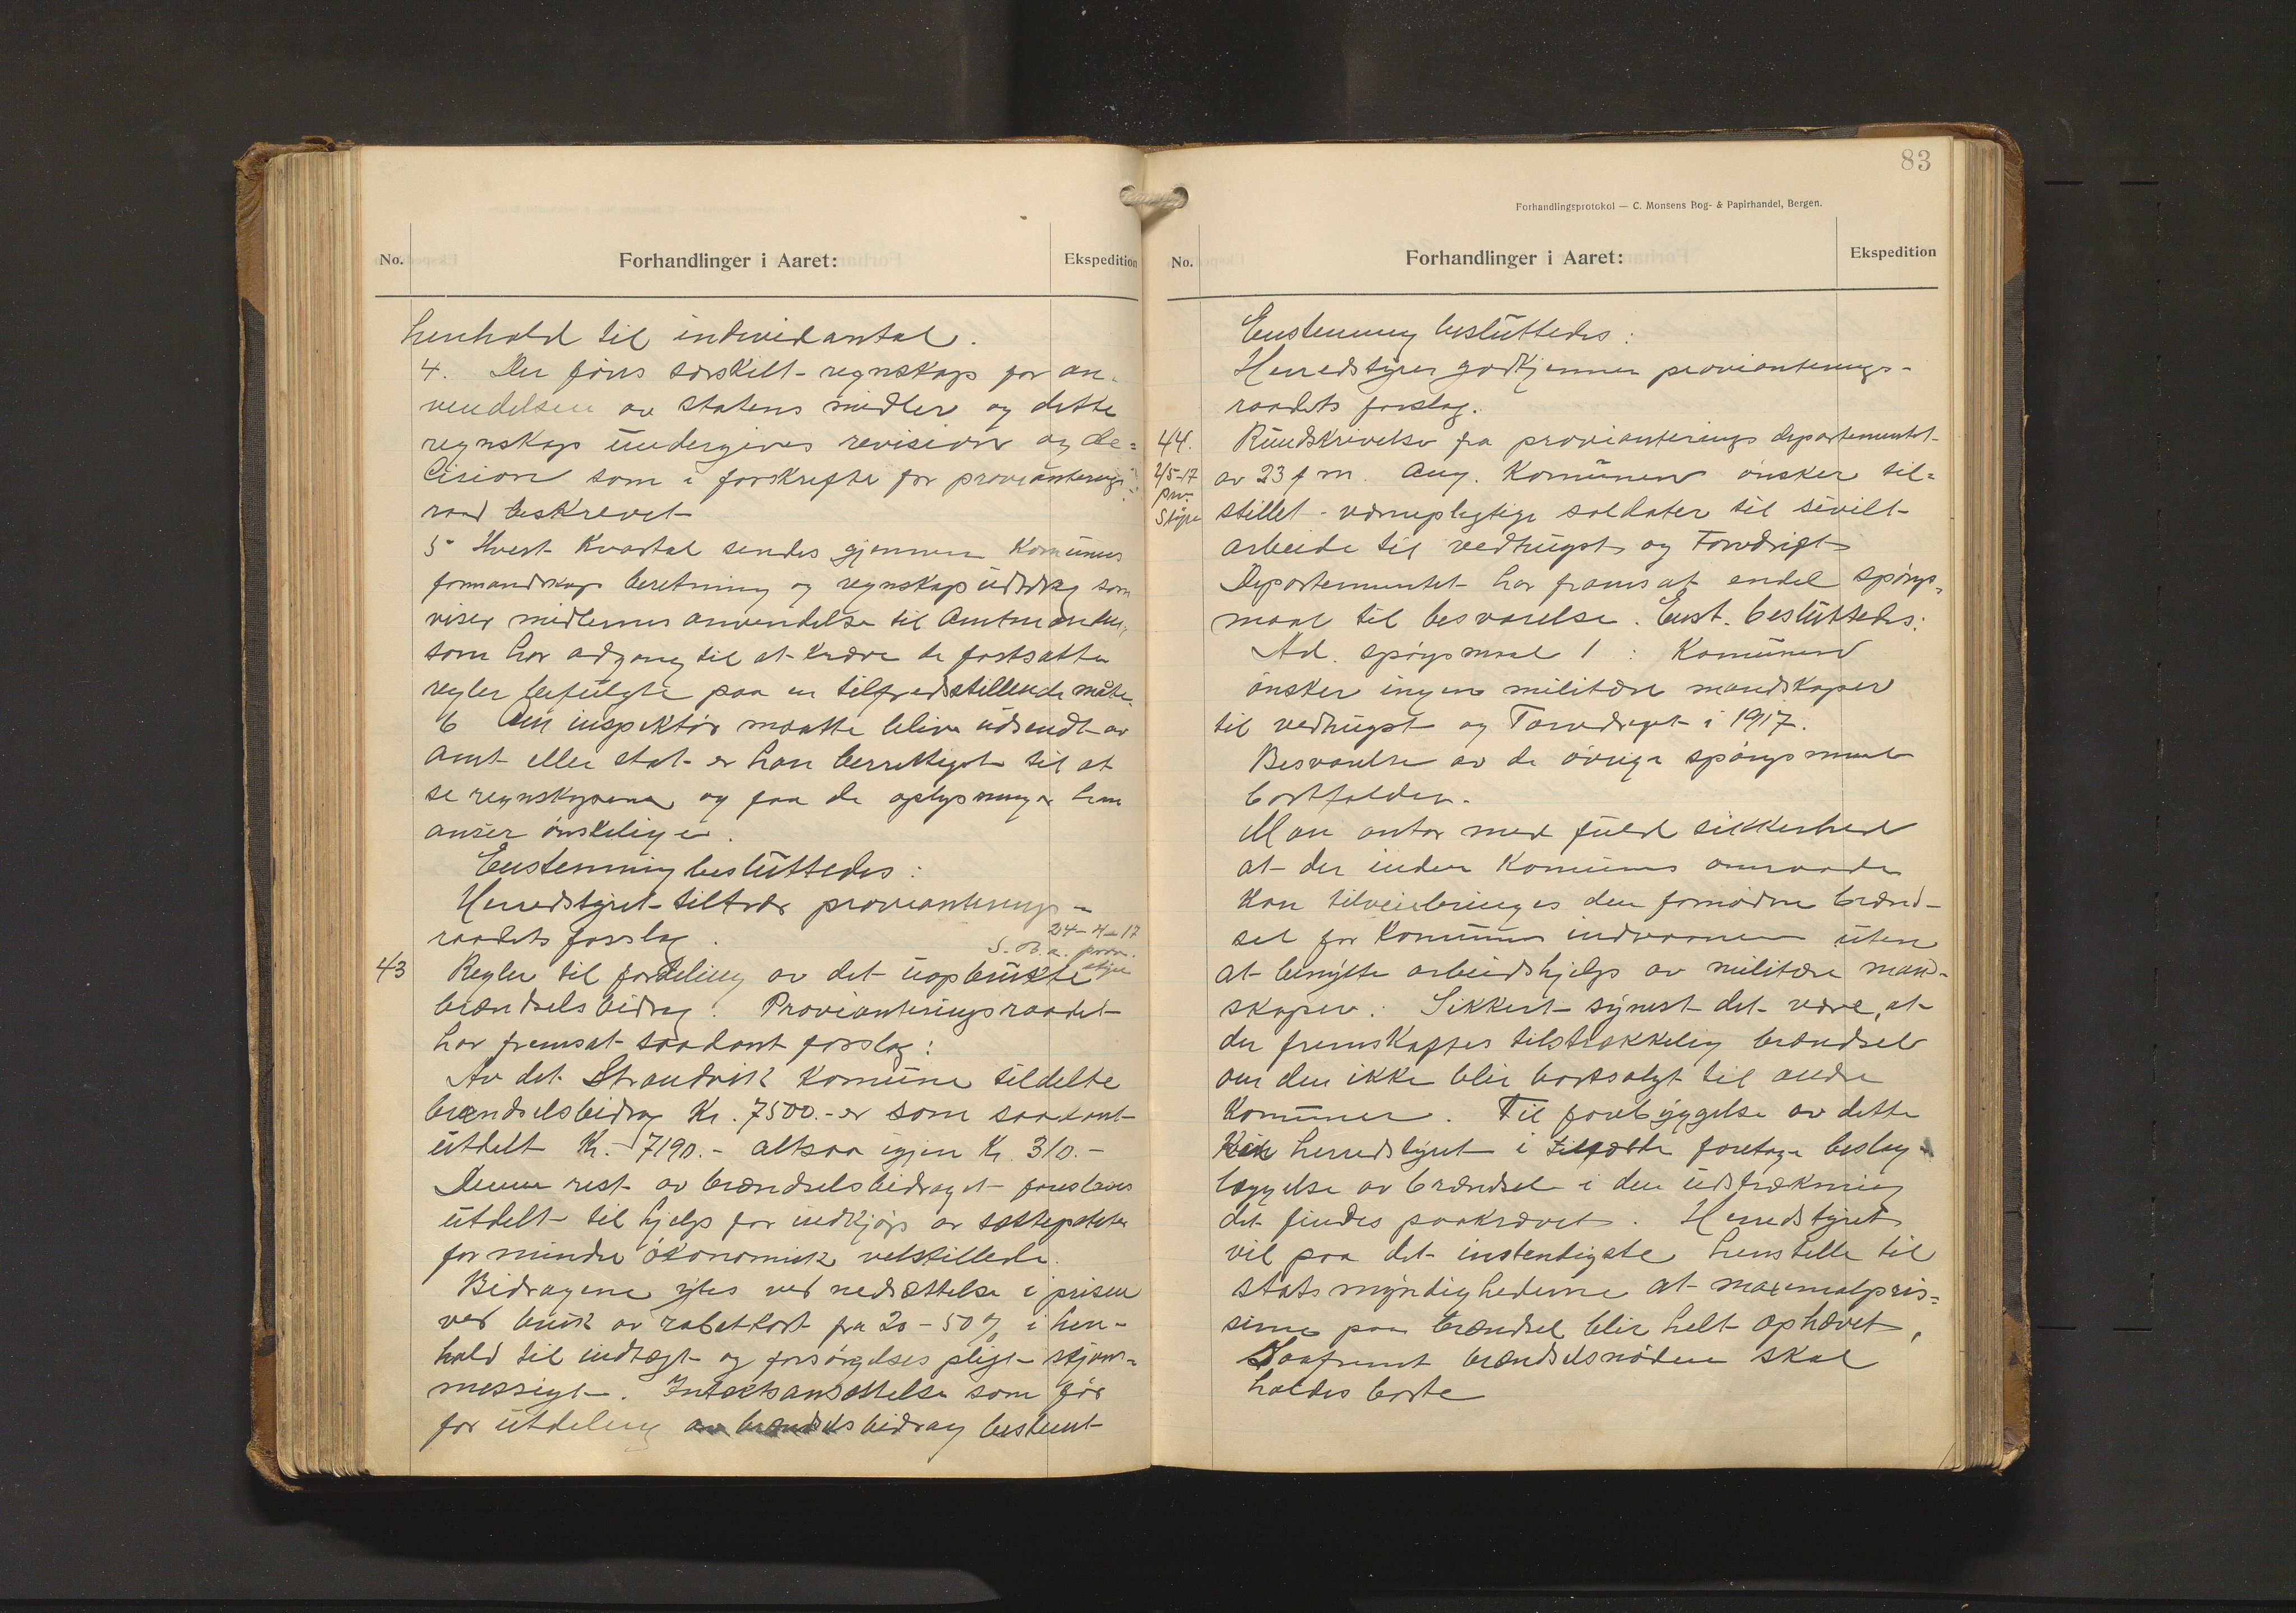 No.
Forhandlinger i Aaret:
Ekspedition
henhold til individantal.
4. Der föres særskilt regnskap for an-
vendelsen av statens midler og dette
regnskap undergives revision og de=
cision som i forskrifter for provianterings
raad beskrevet
5 Hvert kvartal sendes gjennem Komunens
formandskap beretning og regnskapsutdrag som
viser midlernes anvendelse til Amtmanden,
som har adgang til at kræve de fastsatte
regler befulgte paa en tilfredsstillende måte.
6 Om inspektör maatte blive udsendt av
Amt eller stat er han berettiget til at
se regnskaperne og faa de oplysninger han
anser önskelige.
Enstemmig besluttedes:
Herredstyret tiltrær provianterings-
raadets forslag.
24-4-17
S. B. a. prov.
styre
43
Regler til fordeling av det uopbrukte
brændselsbidrag. Provianteringsraadet
har fremsat saadant forslag:
Av det Strandvik Komune tildelte
brændselsbidrag Kr. 7500.- er som saadant
utdelt Kr. 7190.- altsaa igjen Kr. 310.-
Denne rest av brændselsbidraget foreslaaes
utdelt til hjelp for indkjöp av sættepoteter
for mindre ökonomisk velstillede.
Bidragene ytes ved nedsættelse i prisen
ved bruk av rabatkort fra 20-50% i hen-
hold til indtægt og forsörgelses pligt skjöns-
messigt. Intektsansættelse som för
for utdeling av brændselsbidrag bestemt
83
Forhandlingsprotokol — C. Monsens Bog- & Papirhandel, Bergen.
No.
Forhandlinger i Aaret:
Ekspedition
Enstemmig besluttedes:
Herredstyret godkjenner provianterings-
raadets forslag.
44.
2/5-17
prov.
Styre
Rundskrivelse fra provianterings departementet
av 23 f m. Ang. Komunen önsker til=
stillet vernepligtige soldater til sivilt
arbeide til vedhugst og Torvdrift
Departementet har fremsat endel spörgs-
maal til besvarelse. Enst. besluttedes:
Ad. spörgsmaal 1: Komunen
önsker ingen militære mandskaper
til vedhugst og Torvdrift i 1917.
Besvarelse av de övrige spörgsmaal
bortfalder.
Man antar med fuld sikkerhed
at der inden Komunens omraade
kan tilveiebringes den fornödne brænd-
sel for Komunens indvaanere uten
at benytte arbeidshjelp av militære mand-
skaper. Sikkert synest det være, at
der fremskaffes tilstrækkelig brændsel
om den ikke blir bortsolgt til andre
Komuner. Til forebyggelse av dette
kan herredstyret i tilfælde foretage beslag-
læggelse av brændsel i den udstrækning
det findes paakrævet. Herredstyret
vil paa det instendigste henstille til
statsmyndighederne at maximalpris=
erne paa brændsel blir helt ophævet,
Saafremt brændselsnöden skal
holdes borte